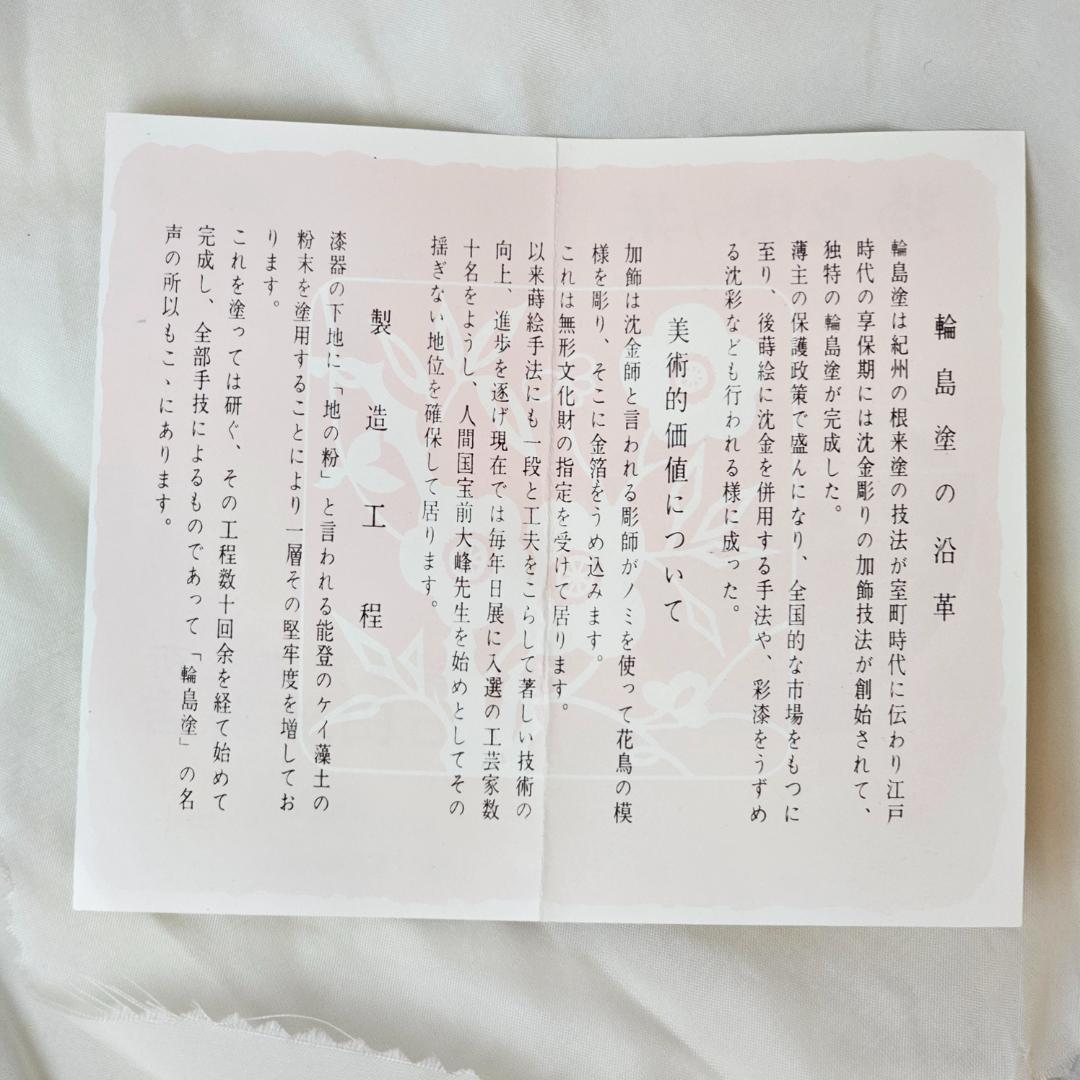 輪島塗の沿革
輪島塗は紀州の根来塗の技法が室町時代に伝わり江戸
時代の享保期には沈金彫りの加飾技法が創始されて、
独特の輪島塗が完成した。
薄主の保護政策で盛んになり、全国的な市場をもつに
至り、後蒔絵に沈金を併用する手法や、彩漆をうずめ
る沈彩なども行われる様に成った。
美術的価値について
加飾は沈金師と言われる彫師がノミを使って花鳥の模
様を彫り、そこに金箔をうめ込みます。
これは無形文化財の指定を受けて居ります。
以来蒔絵手法にも一段と工夫をこらして著しい技術の
向上、進歩を逐げ現在では毎年日展に入選の工芸家数
十名をようし、人間国宝前大峰先生を始めとしてその
揺ぎない地位を確保して居ります。
製造工程
漆器の下地に「地の粉」と言われる能登のケイ藻土の
粉末を塗用することにより一層その堅牢度を増してお
ります。
これを塗っては研ぐ、その工程数十回余を経て始めて
完成し、全部手技によるものであって「輪島塗」の名
声の所以もこゝにあります。